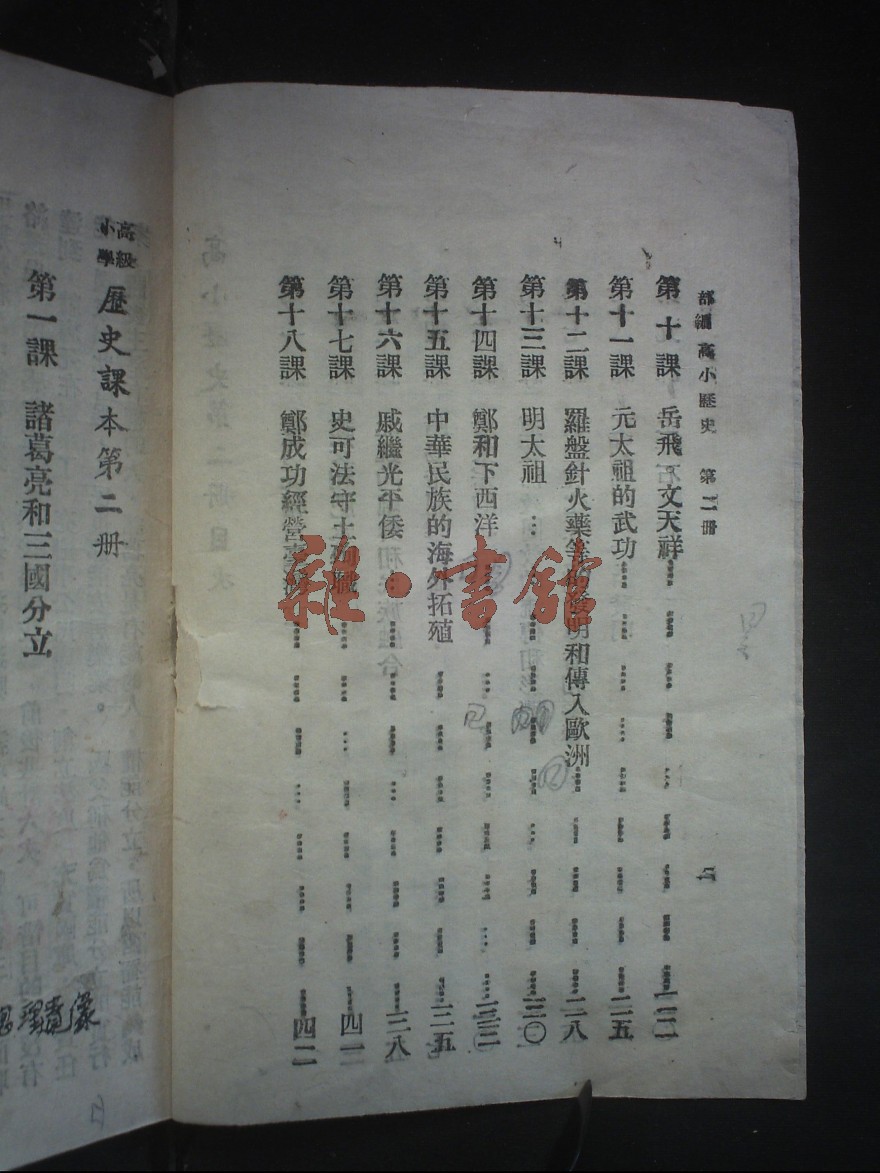 部編高小歷史 第二冊
二
第十課 岳飛 文天祥 二二
第十一課 元太祖的武功 二五
第十二課 羅盤針火藥等的發明和傳入歐洲 二八
第十三課 明太祖 三〇
第十四課 鄭和下西洋 三二
第十五課 中華民族的海外拓殖 三五
第十六課 戚繼光平倭 三八
第十七課 史可法守土殉職 四一
第十八課 鄭成功經營臺灣 四二
雜·書館
高級小學 歷史課本第二冊
第一課 諸葛亮和三國分立